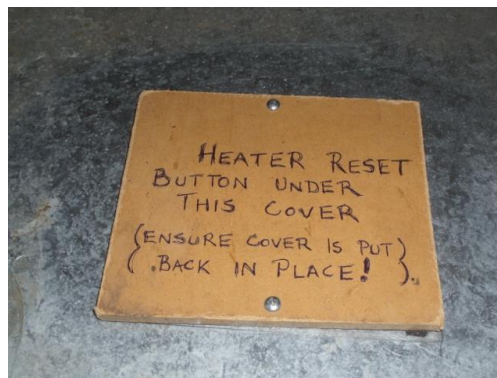 HEATER RESET
BUTTON UNDER
THIS COVER
(ENSURE COVER IS PUT)
{.BACK IN PLACE! }.